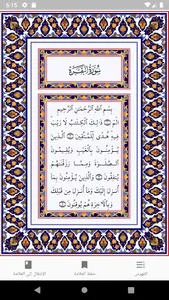 5:15
سُورَةُ البَقَرَةِ
بِسْمِ اللَّهِ الرَّحْمَٰنِ الرَّحِيمِ
الم ۝١ ذَٰلِكَ الْكِتَابُ لَا رَيْبَ
فِيهِ هُدًى لِّلْمُتَّقِينَ ۝٢ الَّذِينَ
يُؤْمِنُونَ بِالْغَيْبِ وَيُقِيمُونَ
الصَّلَوٰةَ وَمِمَّا رَزَقْنَٰهُمْ
يُنفِقُونَ ۝٣ وَالَّذِينَ يُؤْمِنُونَ بِمَا
أُنزِلَ إِلَيْكَ وَمَا أُنزِلَ مِن قَبْلِكَ
وَبِالْآخِرَةِ هُمْ يُوقِنُونَ ۝٤
الفهرس
حفظ العلامة
الانتقال إلى العلامة